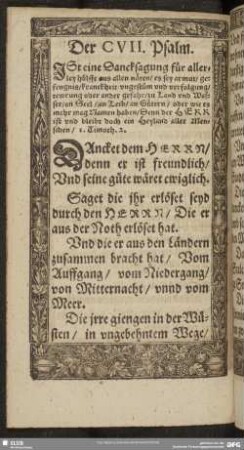 Der CVII. Psalm.
JSt eine Dancksagung für aller-
ley hülffe aus allen nöten/ es sey armut/ ge-
fengnis/ kranckheit/ vngestüm vnd verfolgung/
vnd wie es
mehr mag Namen haben/ Denn der HERR
ist vnd bleibt doch ein Heyland aller Men-
schen/ 1. Timoth. 2.
DAncket dem HERRN/
denn er ist freundlich/
Vnd seine güte wäret ewiglich.
Saget die ihr erlöset seyd
durch den HERRN/ Die er
aus der Noth erlöset hat.
Vnd die er aus den Ländern
zusammen bracht hat/ Vom
Auffgang/ vom Niedergang/
von Mitternacht/ vnnd vom
Meer.
Die jrre giengen in der Wü-
sten/ in vngebehntem Wege/
SLUB